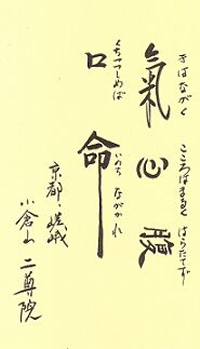 きはながく こころはまるく はらたてず
氣心腹
くちつつしめば いのち ながかれ
口命
京都、嵯峨
小倉山 二尊院